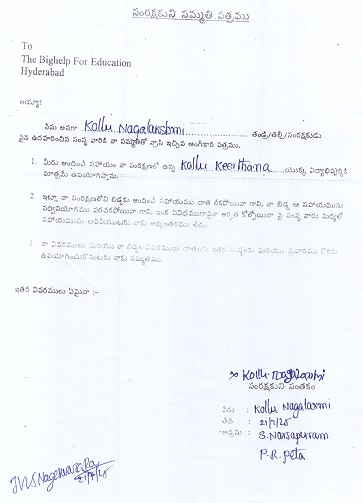 సంరక్షకుని సమ్మతి పత్రము
To
The Bighelp For Education
Hyderabad
అయ్యా!
నేను అనగా Kollu Nagalakshmi తండ్రి/తల్లి/సంరక్షకుడు
పైన ఉదహరించిన సంస్థ వారికి నా సమ్మతితో వ్రాసి ఇచ్చిన అంగీకార పత్రము.
1. మీరు అందించే సహాయం నా సంరక్షణలో ఉన్న Kollu Keerthana యొక్క విద్యాభివృద్ధికి
మాత్రమే ఉపయోగిస్తాను.
2. ఇట్లూ నా సంరక్షణలోని బిడ్డకు అందించే సహాయము దాత లేకపోయినా గాని, నా బిడ్డ ఆ సహాయమును
సద్వినియోగము పరచకపోయినా గాని, ఇంక ఏవిధముగానైనా అర్హత కోల్పోయినా పై సంస్థ వారు మధ్యలో
సహాయమును ఆపివేయుటకు నాకు అభ్యంతరము లేదు.
3. నా వివరములు మరియు నా బిడ్డల వివరములు దాతలకు ఇతర సంస్థలకు మరియు ప్రచారము కొరకు
ఉపయోగించుకొనుటకు నాకు సమ్మతము.
ఇతర వివరములు ఏమైనా :-
Kollu. Nagalaxmi
సంరక్షకుని సంతకం
పేరు : Kollu Nagalaxmi
తేదీ : 21/7/25
అడ్రసు : S. Narsapuram
P.R. peta
JVLS Nageswara Rao
21/7/25